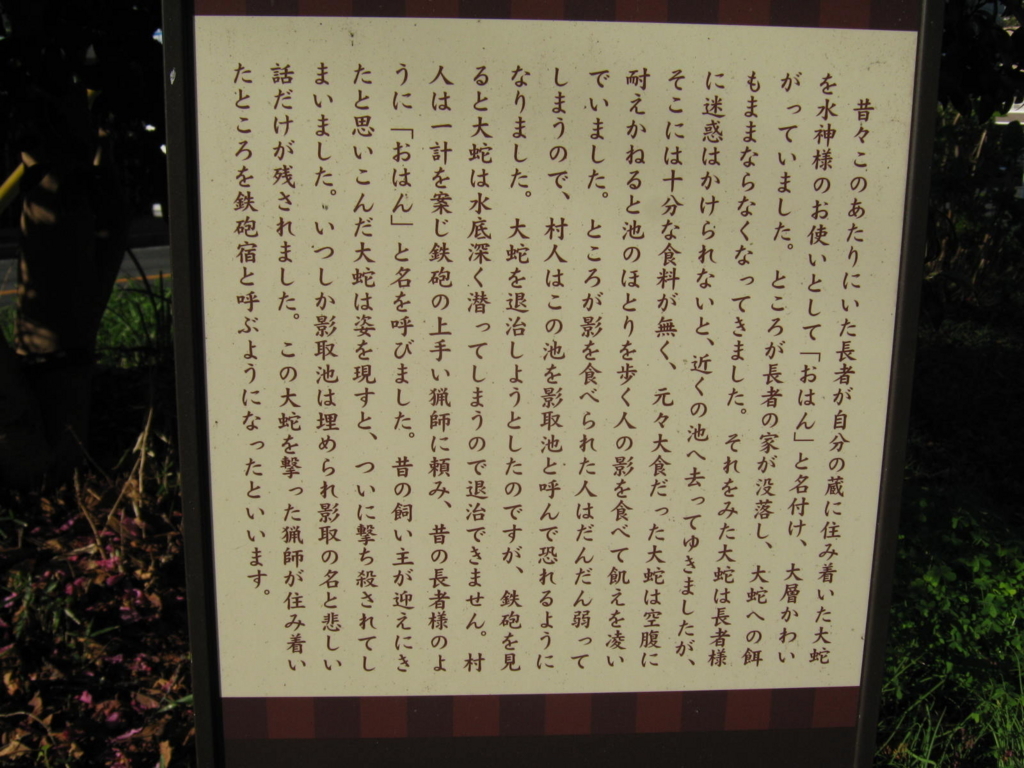 昔々このあたりにいた長者が自分の蔵に住み着いた大蛇
を水神様のお使いとして「おはん」と名付け、大層かわい
がっていました。ところが長者の家が没落し、大蛇への餌
もままならなくなってきました。それをみた大蛇は長者様
に迷惑はかけられないと、近くの池へ去ってゆきましたが、
そこには十分な食料が無く、元々大食だった大蛇は空腹に
耐えかねると池のほとりを歩く人の影を食べて飢えを凌い
でいました。ところが影を食べられた人はだんだん弱って
しまうので、村人はこの池を影取池と呼んで恐れるように
なりました。大蛇を退治しようとしたのですが、鉄砲を見
ると大蛇は水底深く潜ってしまうので退治できません。村
人は一計を案じ鉄砲の上手い猟師に頼み、昔の長者様のよ
うに「おはん」と名を呼びました。昔の飼い主が迎えにき
たと思いこんだ大蛇は姿を現すと、ついに撃ち殺されてし
まいました。いつしか影取池は埋められ影取の名と悲しい
話だけが残されました。この大蛇を撃った猟師が住み着い
たところを鉄砲宿と呼ぶようになったといいます。